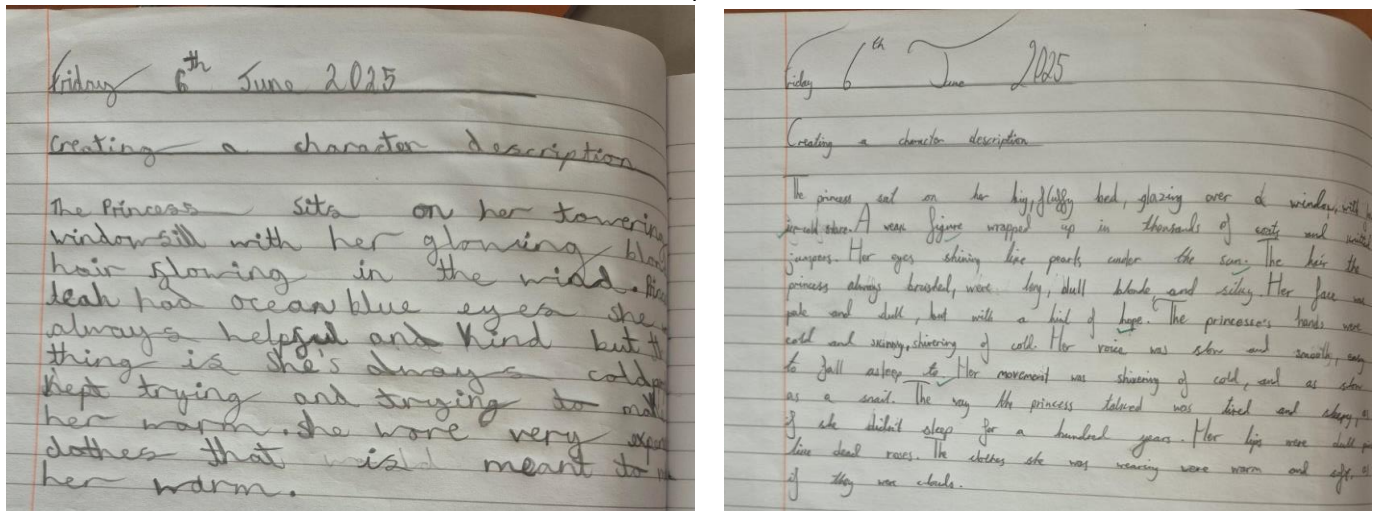 Friday 6th June 2025
Creating a character description
The Princess sits on her towering
windowsill with her glowing
hair flowing in the wind.
leah had ocean blue eyes she
always helpful and kind but
thing is she's always cold
kept trying and trying to
her warm. She wore very
clothes that is meant to
her warm.
Friday 6th June 2025
Creating a character description
The princess sat on her big, fluffy bed, glazing over a window, with
ice-cold stare. A weak figure wrapped up in thousands of coats and
jumpers. Her eyes shining like pearls under the sun. The hair the
princess always brushed, were long, dull blonde and silky. Her face was
pale and dull, but with a hint of hope. The princesse's hands were
cold and skinny, shivering of cold. Her voice was slow and smooth, easy
to fall asleep to. Her movement was shivering of cold, and as slow
as a snail. The way the princess talked was tired and sleepy, as
if she didn't sleep for a hundred years. Her lips were dull
like dead roses. The clothes she was wearing were warm and
if they were clouds.